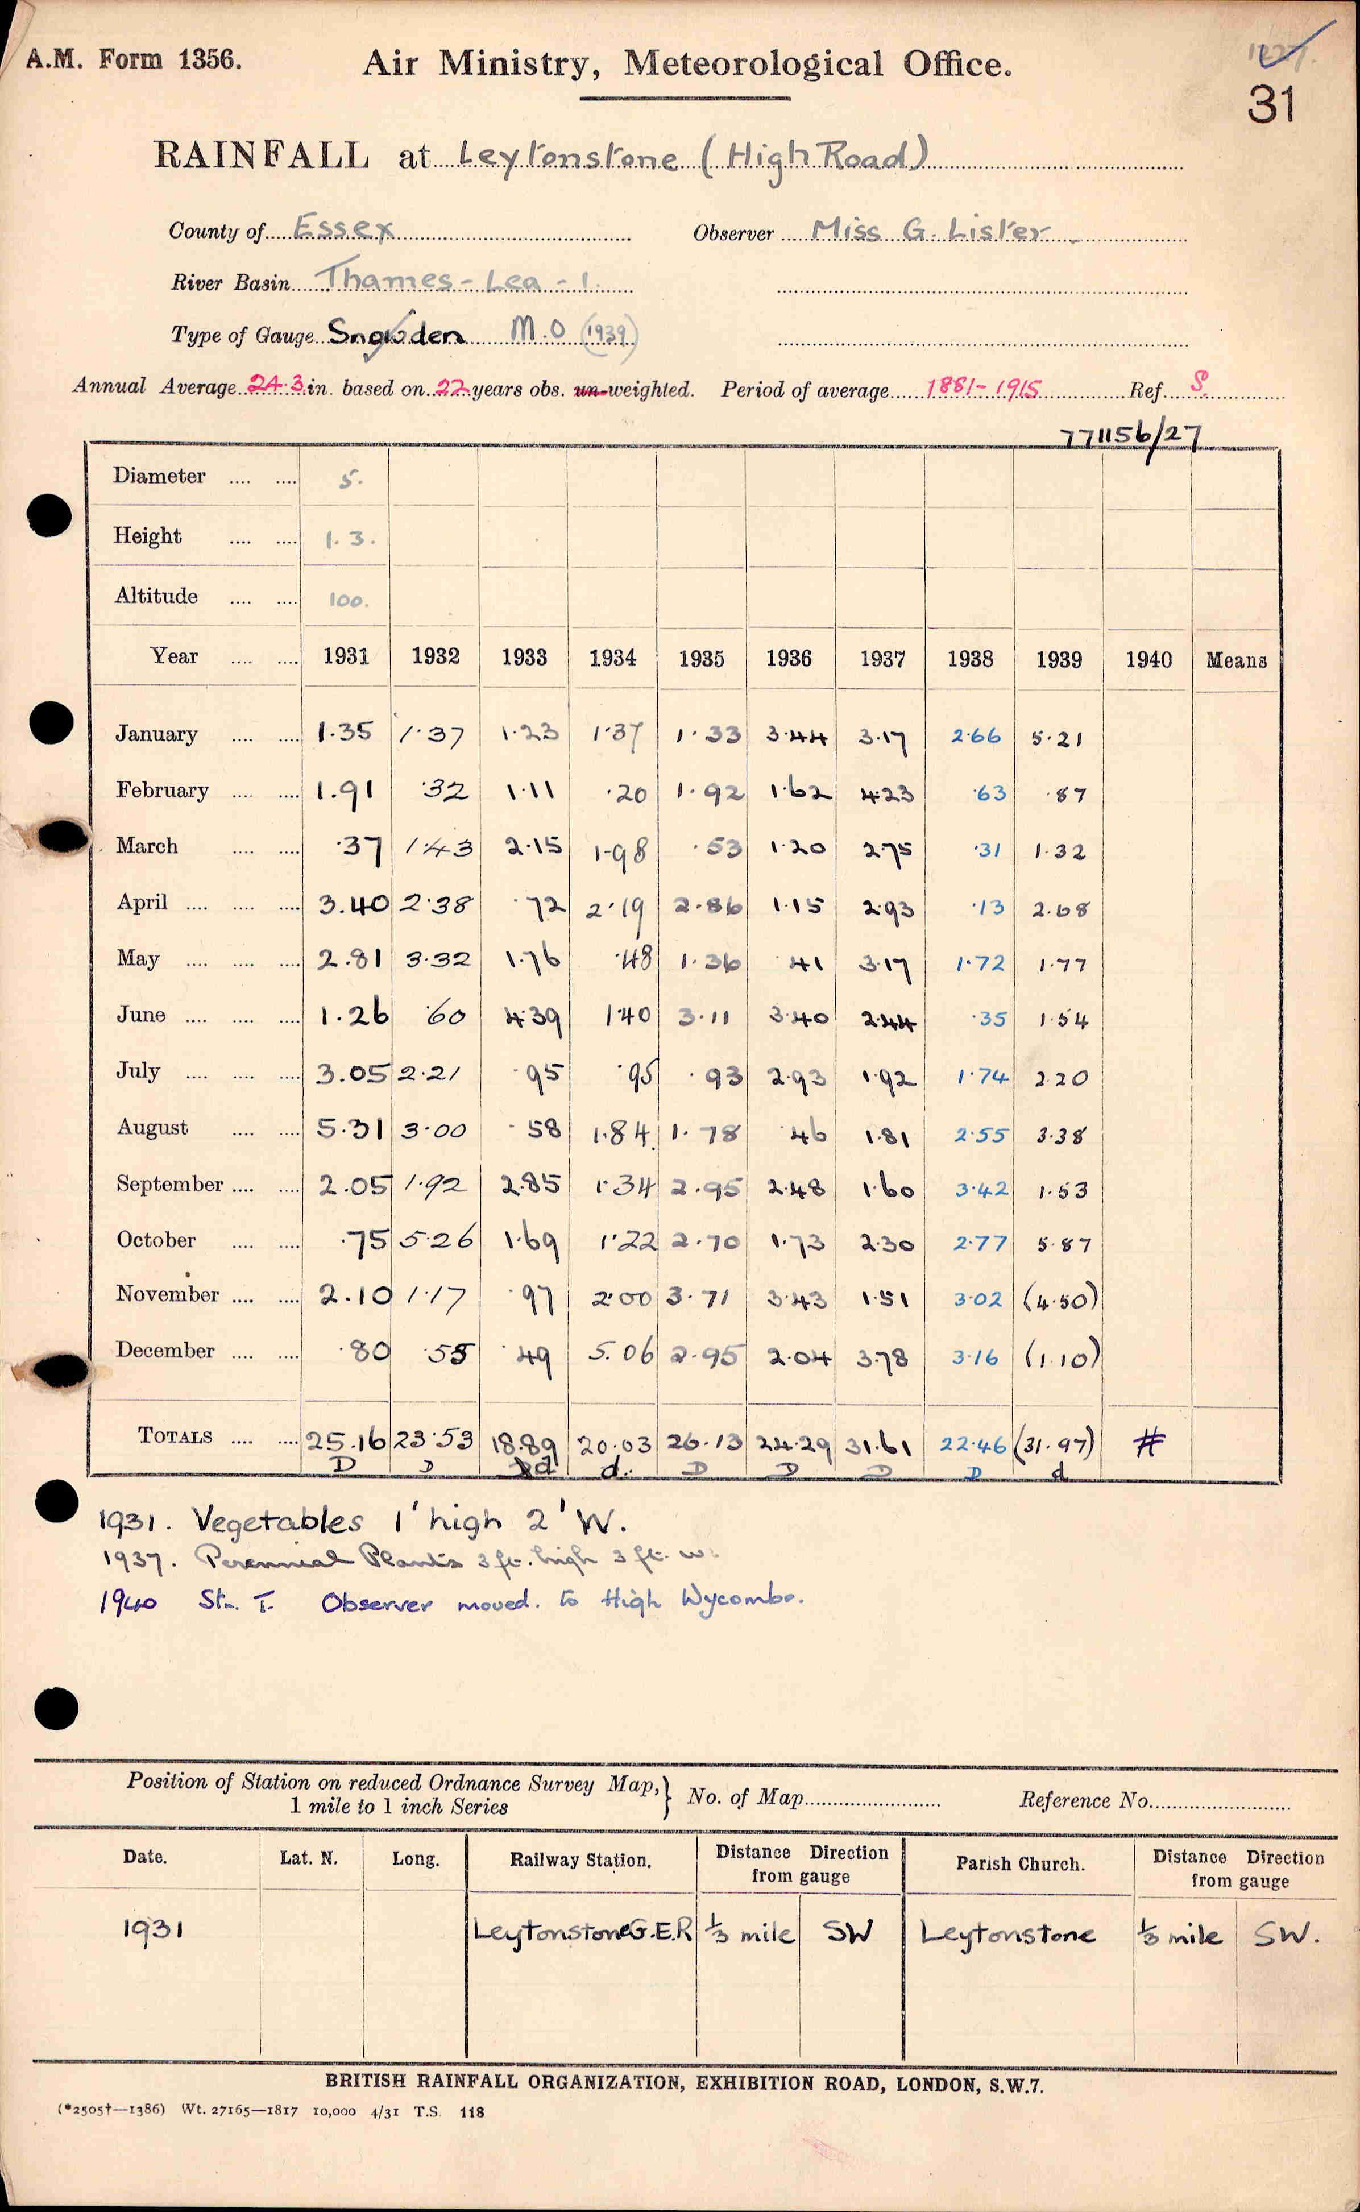 A.M. Form 1356.
Air Ministry, Meteorological Office.
31
RAINFALL at Leytonstone (High Road)
County of Essex Observer Miss G. Lister
River Basin Thames - Lea - 1.
Type of Gauge Snowden M.O (1939)
Annual Average 24.3 in. based on 22 years obs. un-weighted. Period of average 1881-1915 Ref. S.
771156/27
Diameter .... .... 5.
Height .... .... 1. 3.
Altitude .... .... 100.
Year .... .... 1931 1932 1933 1934 1935 1936 1937 1938 1939 1940 Means
January .... .... 1.35 1.37 1.23 1.37 1.33 3.44 3.17 2.66 5.21
February .... .... 1.91 .32 1.11 .20 1.92 1.62 4.23 .63 .87
March .... .... .37 1.43 2.15 1.98 .53 1.20 2.75 .31 1.32
April .... .... .... 3.40 2.38 .72 2.19 2.86 1.15 2.93 .13 2.68
May .... .... .... 2.81 3.32 1.76 .48 1.36 .41 3.17 1.72 1.77
June .... .... .... 1.26 .60 4.39 1.40 3.11 3.40 2.44 .35 1.54
July .... .... .... 3.05 2.21 .95 .95 .93 2.93 1.92 1.74 2.20
August .... .... 5.31 3.00 .58 1.84 1.78 .46 1.81 2.55 3.38
September .... .... 2.05 1.92 2.85 1.34 2.95 2.48 1.60 3.42 1.53
October .... .... .75 5.26 1.69 1.22 2.70 1.73 2.30 2.77 5.87
November .... .... 2.10 1.17 .97 2.00 3.71 3.43 1.51 3.02 (4.50)
December .... .... .80 .55 .49 5.06 2.95 2.04 3.78 3.16 (1.10)
TOTALS .... .... 25.16 23.53 18.89 20.03 26.13 24.29 31.61 22.46 (31.97) #
D D d d. D D D D d
1931. Vegetables 1' high 2' W.
1937. Perennial Plants 3 ft. high 3 ft. w.
1940 Stn. T. Observer moved. to High Wycombe.
Position of Station on reduced Ordnance Survey Map, } No. of Map Reference No.
1 mile to 1 inch Series
Date. Lat. N. Long. Railway Station. Distance Direction from gauge Parish Church. Distance Direction from gauge
1931 Leytonstone G.E.R 1/3 mile SW Leytonstone 1/3 mile SW.
BRITISH RAINFALL ORGANIZATION, EXHIBITION ROAD, LONDON, S.W.7.
(*2505†—1386) Wt. 27165—1817 10,000 4/31 T.S. 118